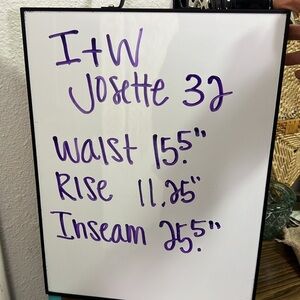 I+W
Josette 32
Waist 15.5"
Rise 11.25"
Inseam 25.5"